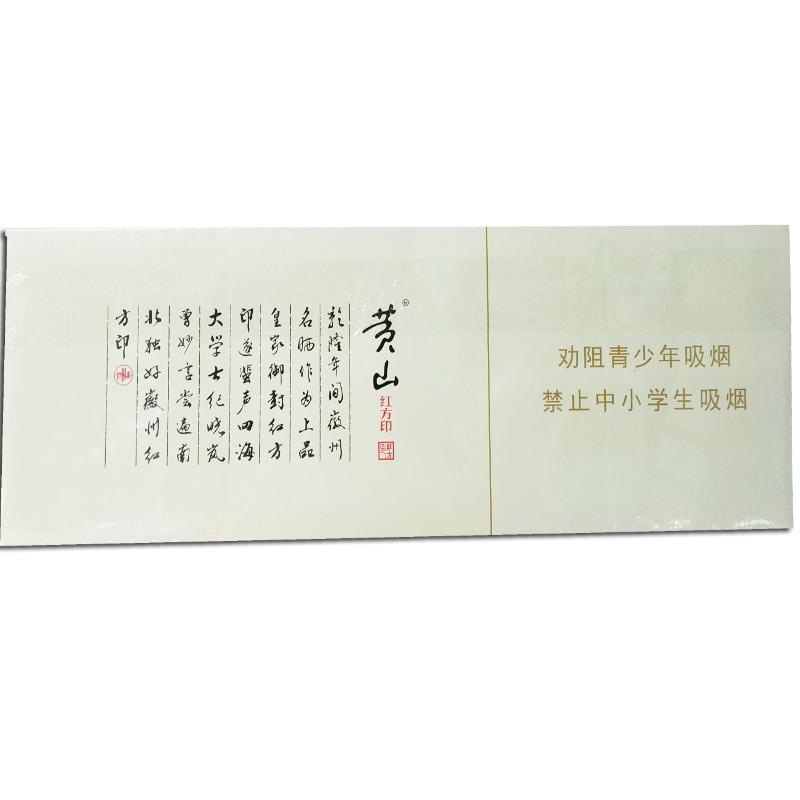 黄山
红方印
乾隆年间徽州
名晒作为上品
皇家御封红方
印遂蜚声四海
大学士纪晓岚
曾妙言尝遍南
北独好徽州红
方印
劝阻青少年吸烟
禁止中小学生吸烟